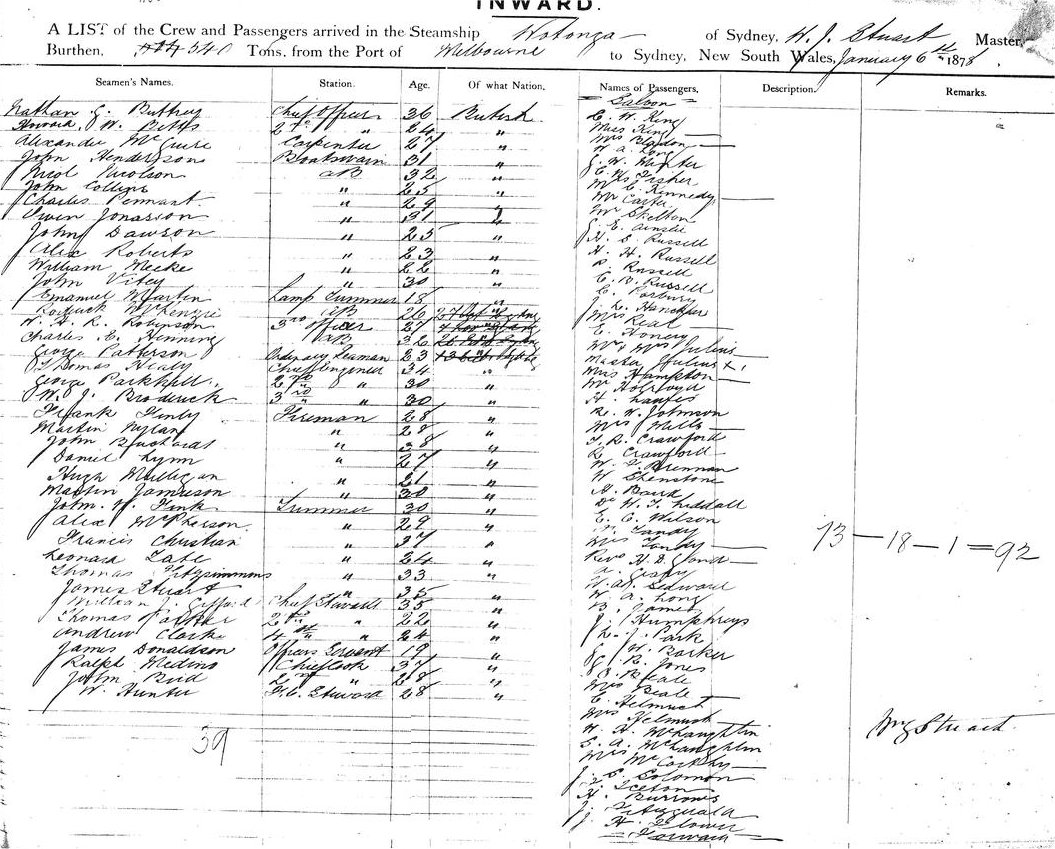 INWARD.
A LIST of the Crew and Passengers arrived in the Steamship Wotonga of Sydney, H. J. Stuart Master,
Burthen, 540 Tons, from the Port of Melbourne to Sydney, New South Wales, January 6th 1878.
Seamen's Names. Station. Age. Of what Nation. Names of Passengers. Description. Remarks.
Nathan G. Buttrey Chief Officer 36 British
Howard W. Pitts 2nd " 24 "
Alexander McGuire Carpenter 27 "
John Henderson Boatswain 31 "
Nicol Nicolson AB 32 "
John Collins " 25 "
Charles Pennant " 29 "
Owen Jonasson " 31 "
John Dawson " 25 "
Alex Roberts " 23 "
William Mecke " 22 "
John Vitey " 30 "
Emanuel Martin Lamp Trimmer 18 "
Roderick McKenzie AB 26
W. H. R. Robinson 3rd Officer 27
Charles E. Henning AB 32
George Patterson Ordinary Seaman 23
Thomas Healy Chief Engineer 34 "
George Parkhill 2nd " 30 "
W. J. Broderick 3rd " 30 "
Frank Finly Fireman 28 "
Martin Nylan " 28 "
John Buchardt " 38 "
Daniel Lynn " 27 "
Hugh Mulligan " 21 "
Martin Jamieson " 30 "
John W. Fink Trimmer 30 "
Alex McPherson " 29 "
Francis Christian " 37 "
Leonard Tate " 24 "
Thomas Fitzsimmons " 33 "
James Stuart " 35 "
William J. Gifford Chief Steward 35 "
Thomas Parker 2nd " 22 "
Andrew Clarke 4th " 24 "
James Donaldson Officers Servant 19 "
Ralph Medino Chief Cook 37 "
John Bird 2nd " 28 "
W. Hunter F.C. Steward 28 "
39
Saloon
E. W. King
Miss King
Mrs
W. A. Long
J. W. Hunter
E. Hs Fisher
Mr C. Kennedy
Mr Carter
Mr Skelton
J. E. Ainslie
H. S. Russell
H. H. Russell
Russell
E. D. Russell
C. Forbury
J. L.
Mrs Real
E. Honery
Mr & Mrs Julius
Master Julius
Mrs Hampton
Mr Holroyd
H.
R. W. Johnson
Mrs Wells
T. R. Crawford
R. Crawford
W. G. Brennan
W. Shenstone
H. Baird
Dr W. T. Liddall
E. C. Wilson
Mr Tandy
Mrs Tandy
Rev. H. D.
W. A. Long
B. James
J. Humphreys
L. J. Park
J. W. Barker
J. R. Jones
Beale
Mrs Beale
E. Helmuch
Mrs Helmuch
W. H. McLaughlin
S. A. McLaughlin
Mrs McCarthy
J. S. Solomon
H. Burrows
J. Fitzgerald
J. H. Flower
Forward
73 — 18 — 1 = 92
Stuart